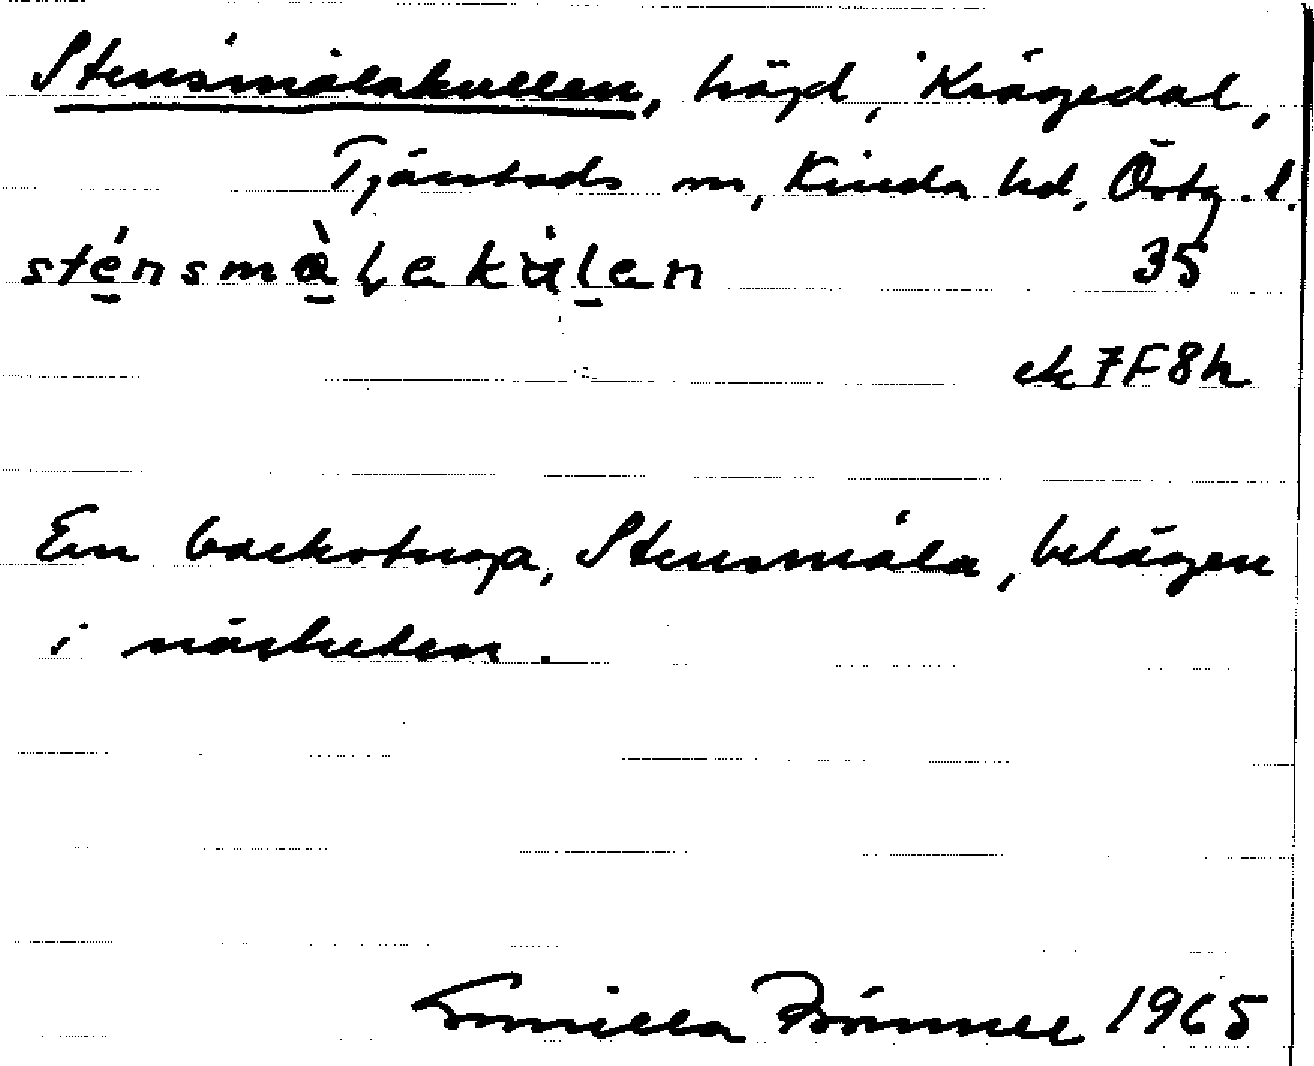 Stensmålakullen, höjd, Krågedal,
Tjärstads sn, Kinda hd, Östg. l.
sténsmå̀lakùlen 35
ek 7F8h
En backstuga, Stensmåla, belägen
i närheten.
1965